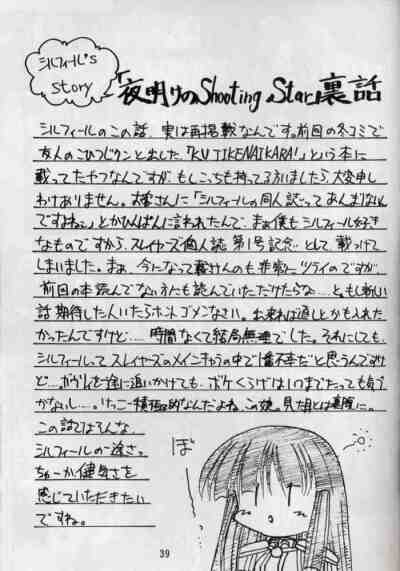 シルフィール's
story
「夜明けのShooting Star」裏話
シルフィールのこの話、実は再掲載なんです。前回の冬コミで
友人のこひつじクンと出した「KUJIKENAIKARA!」という本に
載ってたヤツなんですが、もしこっちも持ってる方いましたら大変申し
わけありません。大勢さんに「シルフィールの同人誌ってあんまりない
ですよねぇ」とかひんぱんに言われたんで、まぁ僕もシルフィール好き
なものですから、スレイヤーズ個人誌 第1号記念として載っけて
しまいました。まぁ、今になって載けんのも非常にツライのですが、
前回の本読んでない方にも読んでいただけたらな…と。もし新しい
話期待した人いたらホントゴメンなさい。出来れば通しとかも入れた
かったんですけど……時間なくて結局無理でした。それにしても、
シルフィールって スレイヤーズのメインキャラの中で1番不幸だと思うんですけ
ど…ガウリイを途に追いかけても、ボケくらげはいつまでたっても気づ
かないし……。けっこー積極的なんだよね、この娘。見た目とは裏腹に。
この話ではそんな
シルフィールの一途さ、
ちゅーか健気さを
感じていただきたい
ですね。
ぼ
39